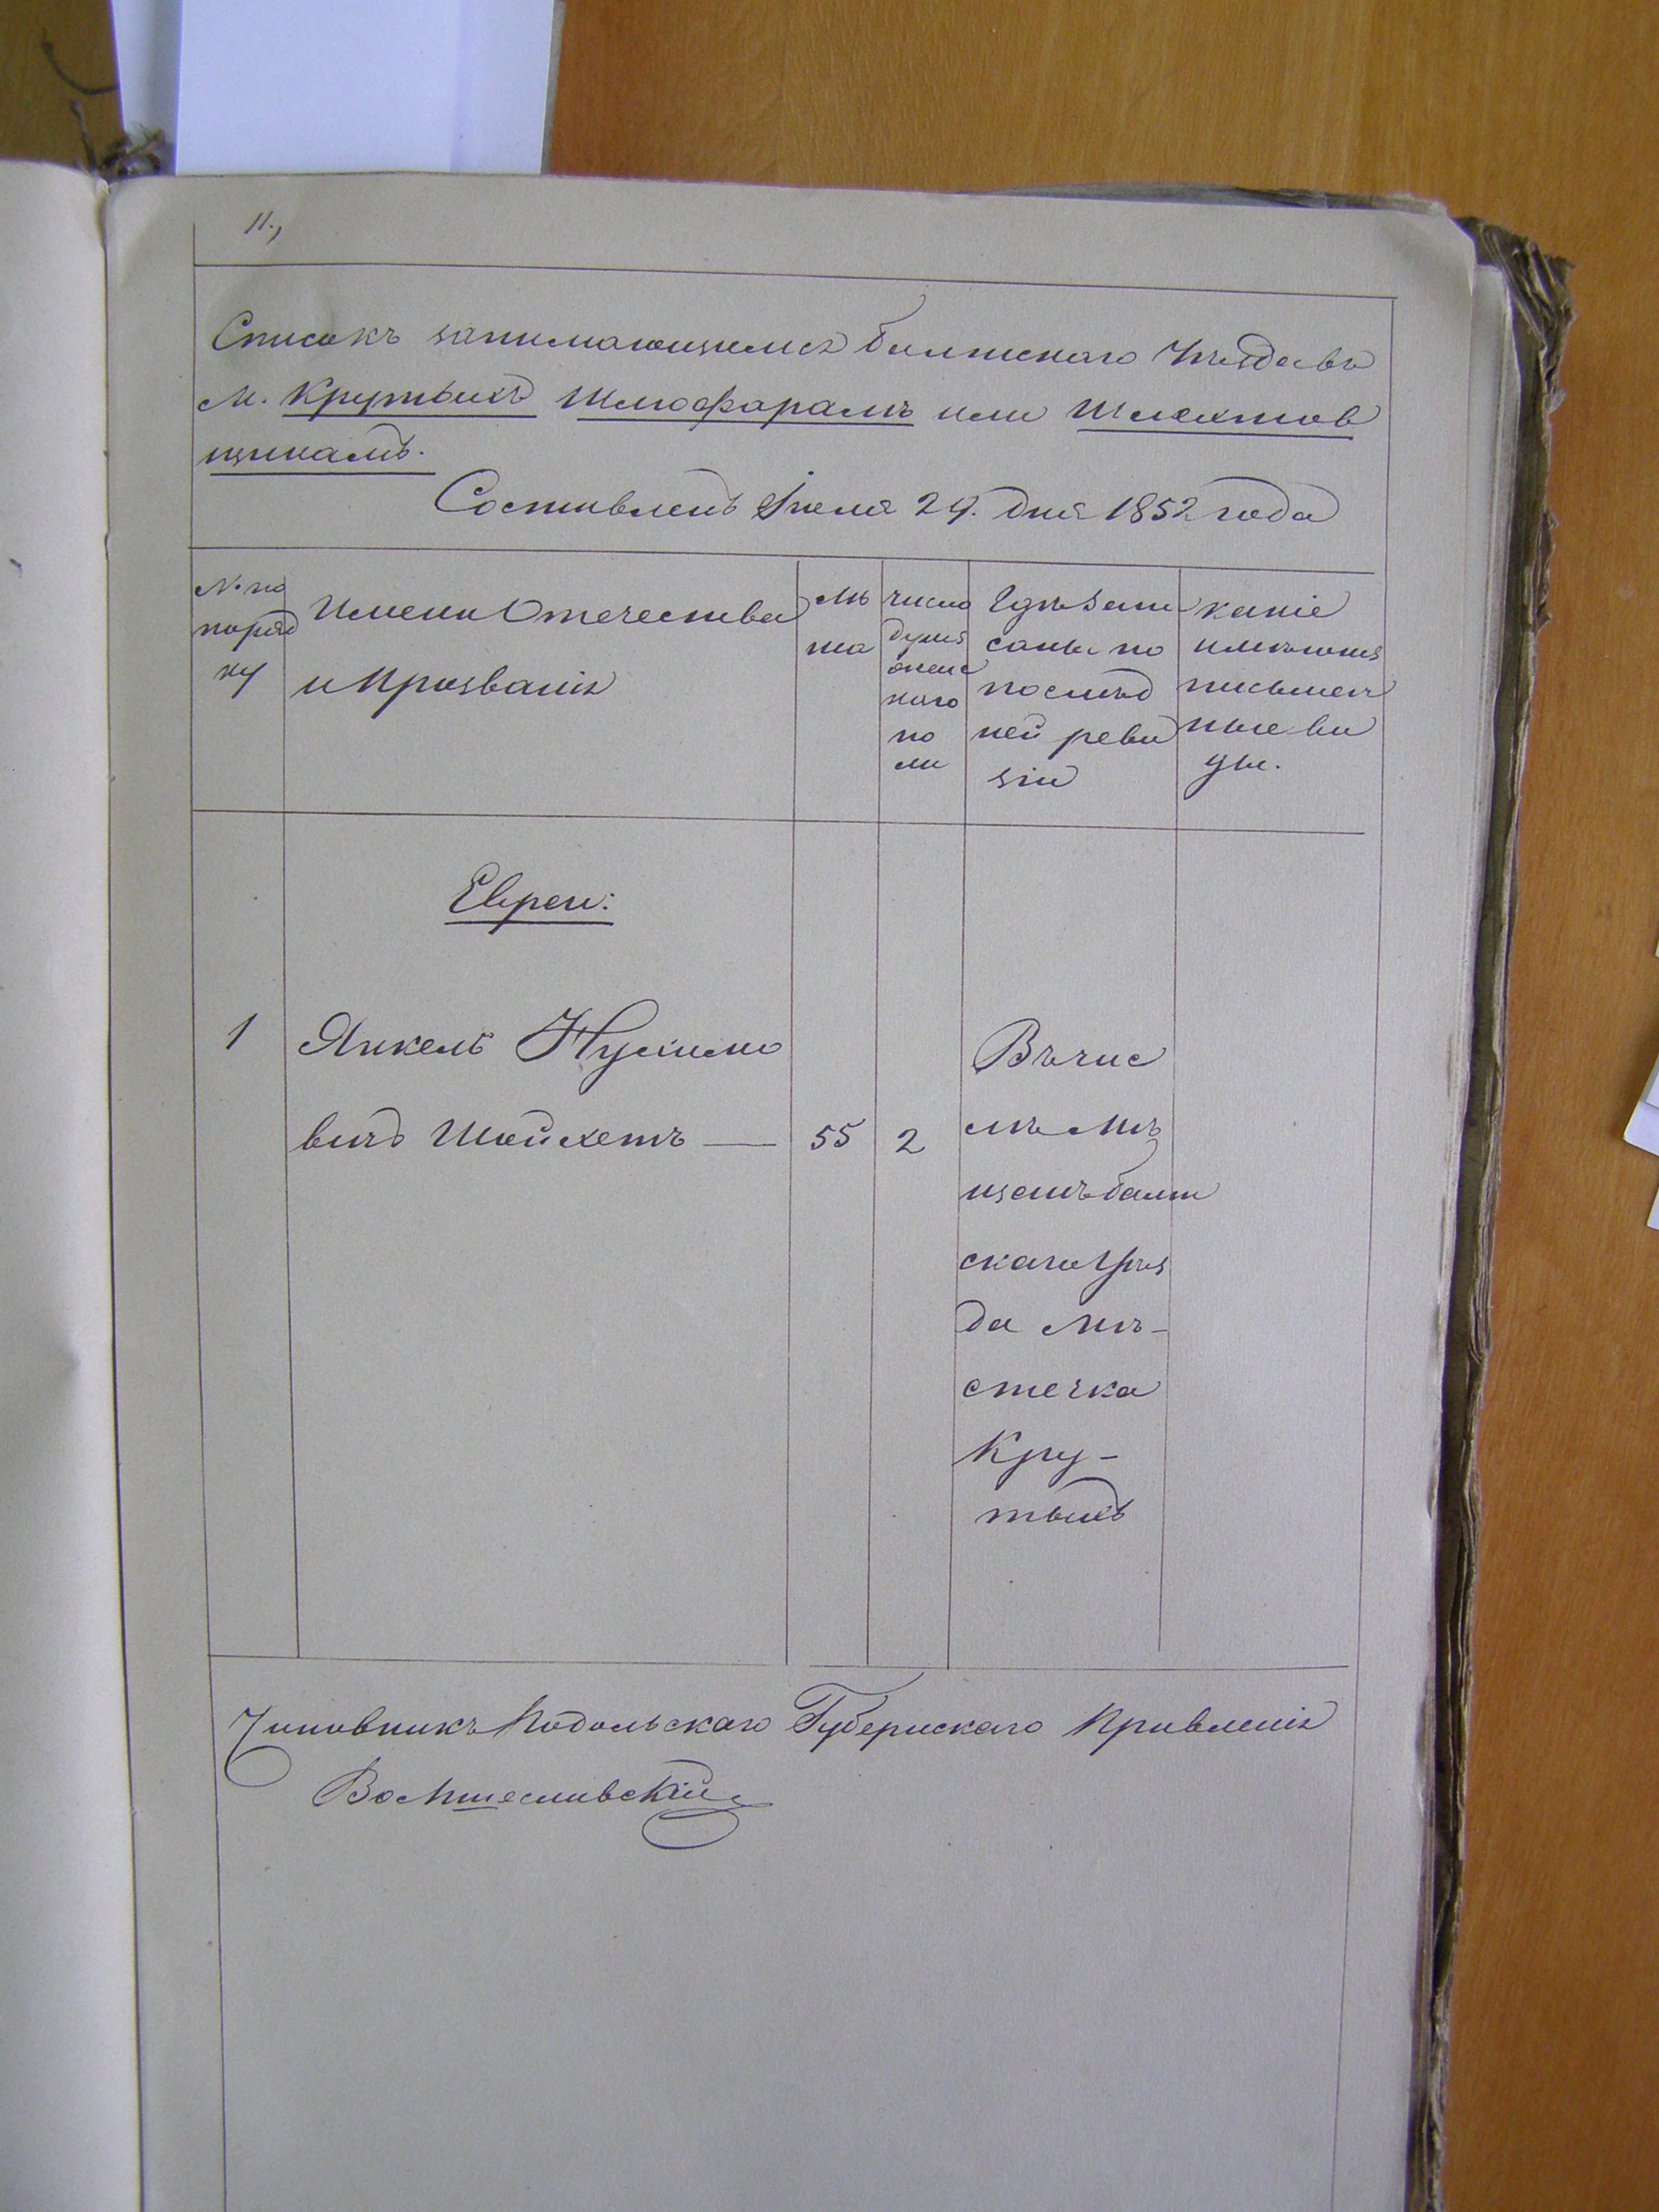 11.,
Списокъ занимающимся Балтскаго Уѣзда въ
М. Крутыхъ Шмофарамъ или Шлехтов
щикамъ.
Составленъ Іюля 24. дня 1852 года
№ по
поряд
ку
Имена Отечества
и Прозванія
Лѣ
та
число
душъ
женс
каго
по
ла
Гдѣ запи
саны по
послѣд
ней реви
зіи
какіе
имѣютъ
письмен
ные ви
ды.
Евреи:
1
Янкель Нухимо
вичъ Шойхетъ —
55
2
Въ чис
лѣ Мѣ
щанъ Балт
скаго Уѣз
да Мѣ-
стечка
Кру-
тыхъ
Чиновникъ Подольскаго Губернскаго Правленія